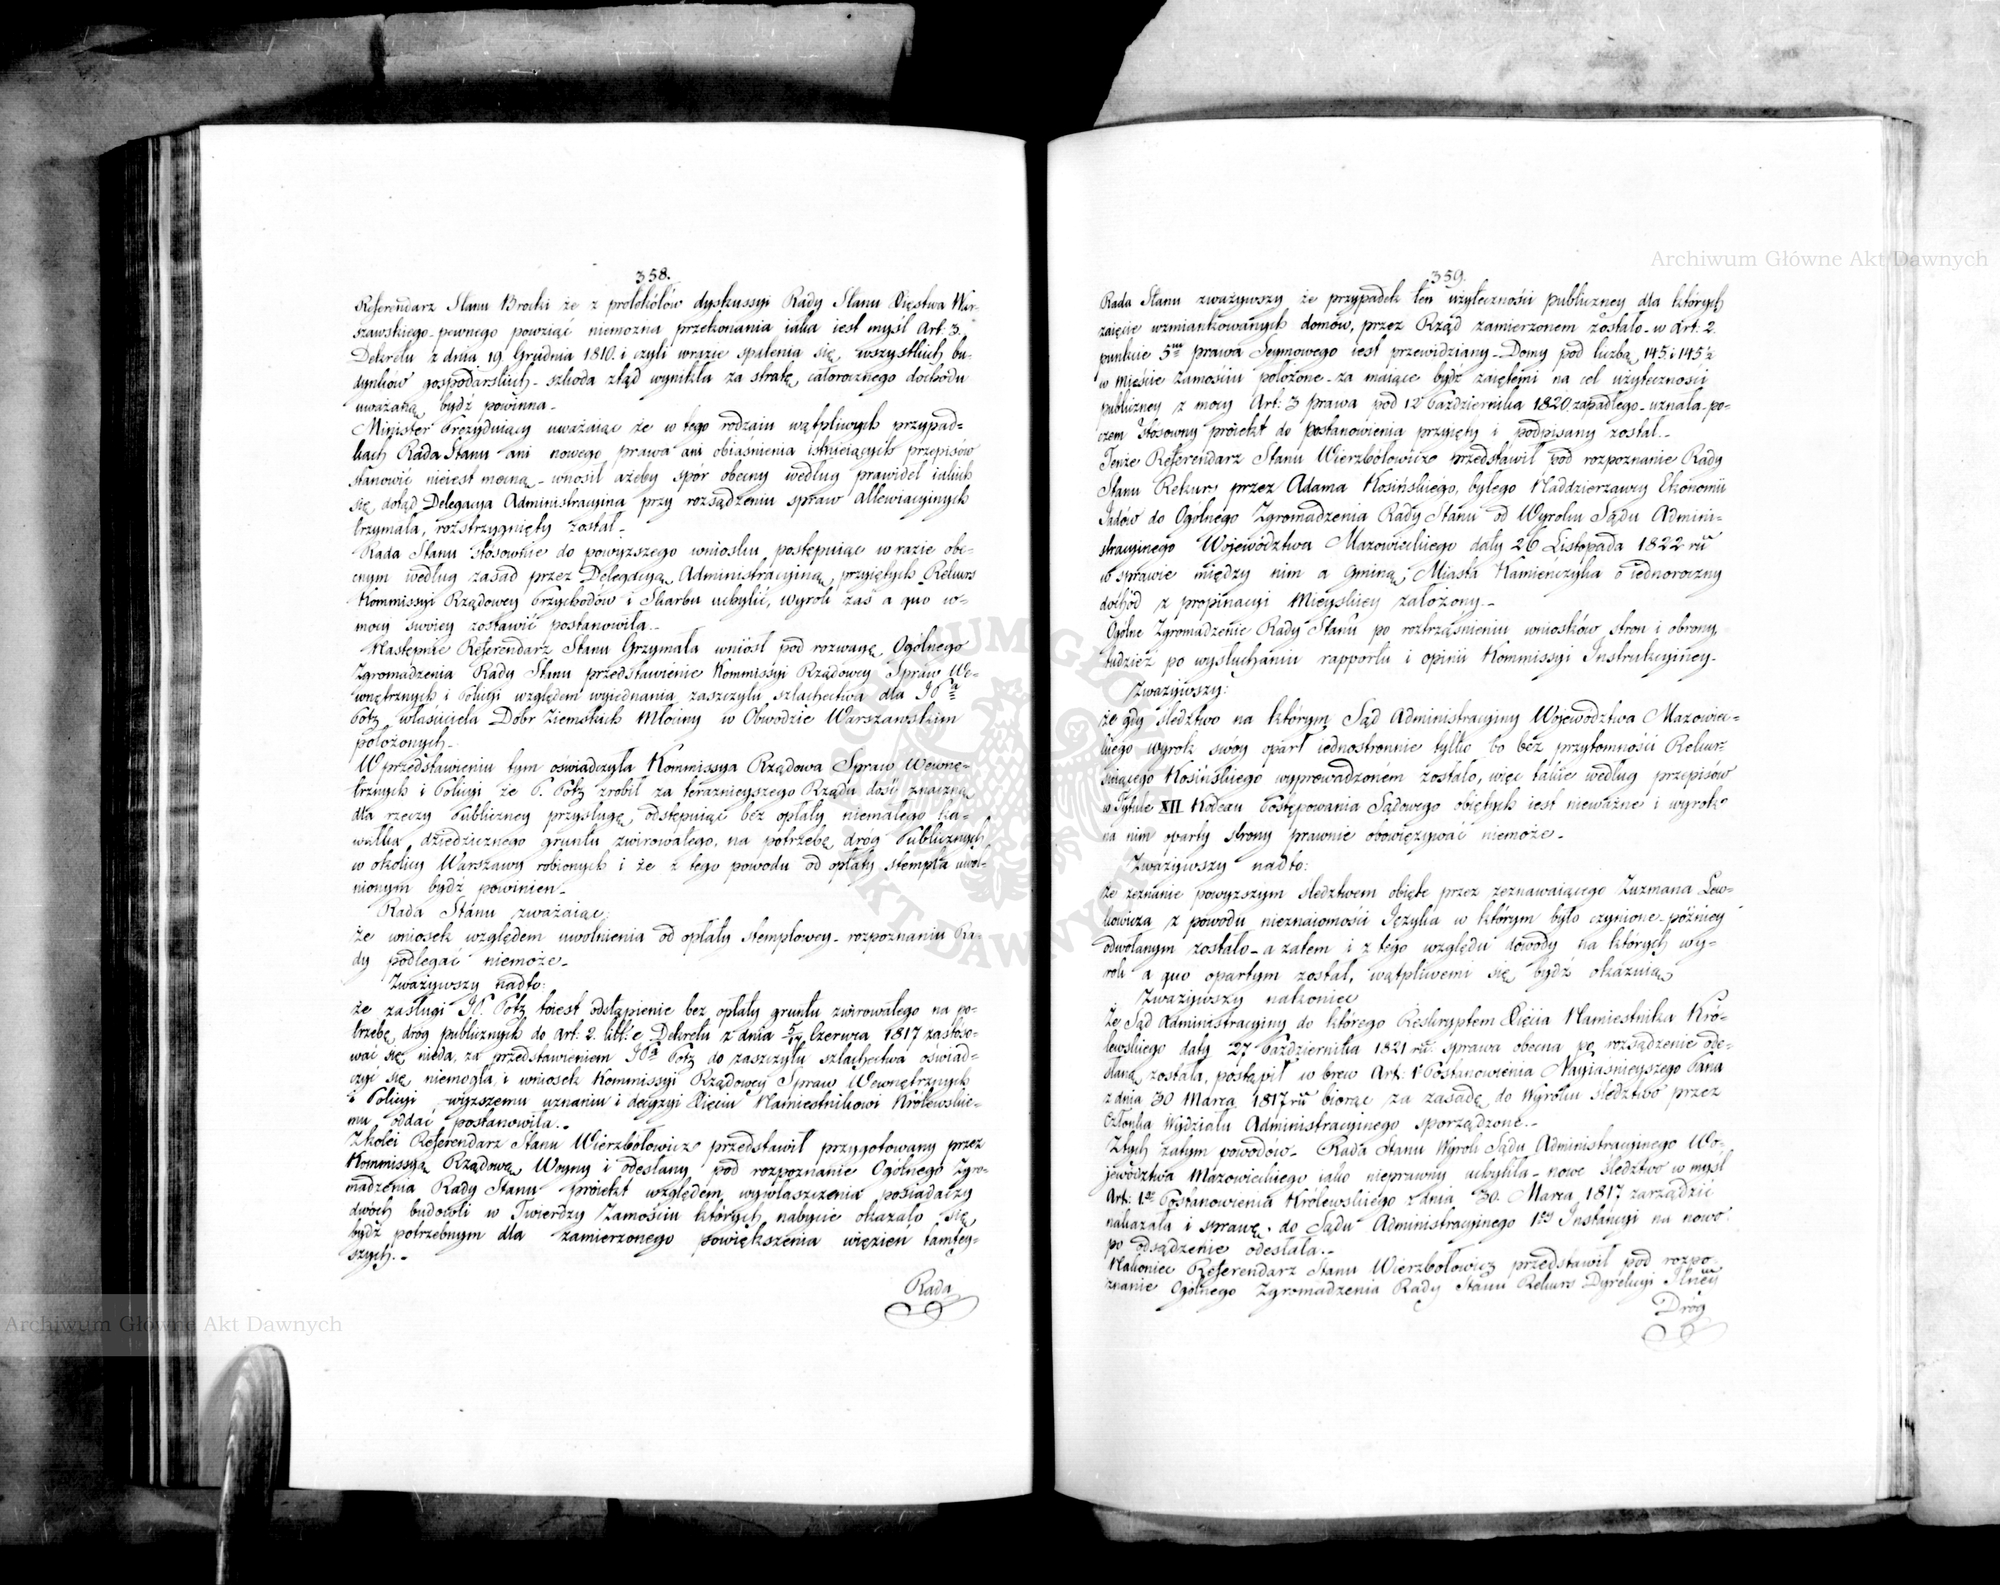 358.
Referendarz Stanu Brocki że z protokółów dyskussyi Rady Stanu Xięstwa War-
szawskiego pewnego powziąć niemożna przekonania iaka iest myśl Art: 3.
Dekretu z dnia 19 Grudnia 1810. i czyli wrazie spalenia się, wszystkich bu-
dynków gospodarskich szkoda ztąd wynikła za stratę całorocznego dochodu
uważaną bydź powinna.
Minister Prezyduiący uważaiąc że w tego rodzaiu wątpliwych przypad-
kach Rada Stanu ani nowego prawa ani obiaśnienia istnieiących przepisów
stanowić nieiest mocną - wnosił ażeby spór obecny według prawideł iakich
się dotąd Delegacya Administracyina przy rozsądzeniu spraw allewiacyinych
trzymała, rozstrzygnięty został.
Rada Stanu stósownie do powyższego wniosku postępuiąc w razie obe-
cnym według zasad przez Delegacyą Administracyiną przyiętych Rekurs
Kommissyi Rządowey Przychodów i Skarbu uchylić, wyrok zaś a quo w-
mocy swoiey zostawić postanowiła.
Następnie Referendarz Stanu Grzymała wniósł pod rozwagę Ogólnego
Zgromadzenia Rady Stanu przedstawienie Kommissyi Rządowey Spraw We-
wnętrznych i Policyi względem wyiednania zaszczytu szlachectwa dla JPa
Potz właściciela Dobr Ziemskich Młociny w Obwodzie Warszawskim
położonych.
W przedstawieniu tym oświadczyła Kommissya Rządowa Spraw Wewnę-
trznych i Policyi że P. Potz zrobił za teraźnieyszego Rządu dość znaczną
dla rzeczy Publiczney przysługę, odstępuiąc bez opłaty niemałego ka-
wałku dziedzicznego gruntu żwirowatego, na potrzebę dróg Publicznych
w okolicy Warszawy robionych i że z tego powodu od opłaty stempla uwol-
nionym bydź powinien.
Rada Stanu zważaiąc:
że wniosek względem uwolnienia od opłaty stemplowey - rozpoznaniu Ra-
dy podlegać niemoże.
Zważywszy nadto:
że zasługi JP. Potz toiest odstąpienie bez opłaty gruntu żwirowatego na po-
trzebę dróg publicznych do Art: 2. litt: c Dekretu z dnia Czerwca 1817 zastóso-
wać się nieda, za przedstawieniem JPa Potz do zaszczytu szlachectwa oświad-
czyć się niemogła, i wniosek Kommissyi Rządowey Spraw Wewnętrznych
i Policyi wyższemu uznaniu i decyzyi Xięciu Namiestnikowi Królewskie-
mu oddać postanowiła.
Zkolei Referendarz Stanu Wierzbołowicz przedstawił przygotowany przez
Kommissyą Rządową Woyny i odesłany pod rozpoznanie Ogólnego Zgro-
madzenia Rady Stanu proiekt względem wywłaszczenia posiadaczy
dwóch budowli w Twierdzy Zamościu których nabycie okazało się
bydź potrzebnym dla zamierzonego powiększenia więzień tamtey-
szych.
Rada
359.
Rada Stanu zważywszy że przypadek ten użyteczności publiczney dla których
zaięcie wzmiankowanych domów, przez Rząd zamierzonem zostało w Art: 2.
punkcie 5m prawa Seymowego iest przewidziany - Domy pod liczbą 145 i 145½
w Mieście Zamościu położone za maiące bydź zaiętemi na cel użyteczności
publiczney z mocy Art: 3 prawa pod 12 Października 1820 zapadłego uznała po-
czem stósowny proiekt do postanowienia przyięty i podpisany został.
Tenże Referendarz Stanu Wierzbołowicz przedstawił pod rozpoznanie Rady
Stanu Rekurs przez Adama Kosińskiego, byłego Naddzierzawcy Ekonomii
Jadów do Ogólnego Zgromadzenia Rady Stanu od Wyroku Sądu Admini-
stracyinego Województwa Mazowieckiego daty 26 Listopada 1822 rū
w sprawie między nim a Gminą Miasta Kamieńczyka o iednoroczny
dochód z propinacyi Mieyskiey założony.
Ogólne Zgromadzenie Rady Stanu po roztrząśnieniu wniosków stron i obrony,
tudzież po wysłuchaniu rapportu i opinii Kommissyi Instrukcyiney.
Zważywszy:
że gdy śledztwo na którym Sąd Administracyiny Województwa Mazowiec-
kiego wyrok swóy oparł iednostronnie tylko bo bez przytomności Rekur-
suiącego Kosińskiego wyprowadzoném zostało, więc takie według przepisów
w Tytule XII Kodexu Postępowania Sądowego obiętych iest nieważne i wyrok
na nim oparty strony prawnie obowięzywać niemoże.
Zważywszy nadto:
że zeznanie powyższym śledztwem obięte przez zeznawaiącego Zuzmana Lew-
kowicza z powodu nieznaiomości Języka w którym było czynione później
odwołanym zostało - a zatem i z tego względu dowody na których wy-
rok a quo opartym został, wątpliwemi się bydź okazuią
Zważywszy nakoniec
że Sąd Administracyiny do którego Reskryptem Xięcia Namiestnika Kró-
lewskiego daty 27 Października 1821 rū. sprawa obecna po rozsądzenie ode-
słaną została, postąpił w brew Art: 1 Postanowienia Nayiaśnieyszego Pana
z dnia 30 Marca 1817 rū biorąc za zasadę do Wyroku śledztwo przez
Członka Wydziału Administracyinego sporządzone.
Ztych zatym powodów - Rada Stanu Wyrok Sądu Administracyinego Wo-
jewództwa Mazowieckiego iako nieprawny uchyliła - nowe śledztwo w myśl
Art: 1go Postanowienia Królewskiego z dnia 30. Marca 1817 zarządzić
nakazała i sprawę do Sądu Administracyinego 1ey Instancyi na nowo
po odsądzenie odesłała.
Nakoniec Referendarz Stanu Wierzbołowicz przedstawił pod rozpo-
znanie Ogólnego Zgromadzenia Rady Stanu Rekurs Dyrekcyi Jlney
Dróg
Archiwum Główne Akt Dawnych
Archiwum Główne Akt Dawnych
ARCHIWUM GŁÓWNE AKT DAWNYCH